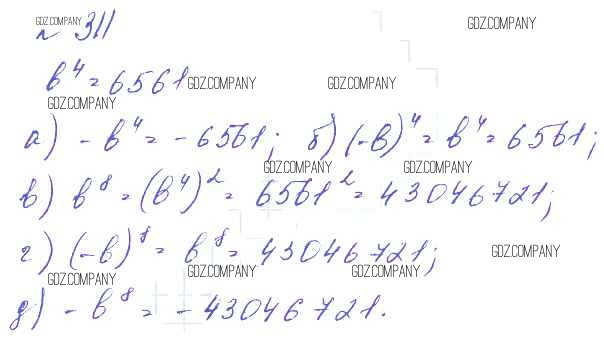 GDZ.COMPANY
№ 311 GDZ.COMPANY
b⁴ = 6561 GDZ.COMPANY GDZ.COMPANY
GDZ.COMPANY
а) -b⁴ = -6561; б) (-b)⁴ = b⁴ = 6561;
GDZ.COMPANY GDZ.COMPANY
в) b⁸ = (b⁴)² = 6561² = 43046721;
г) (-b)⁸ = b⁸ = 43046721; GDZ.COMPANY
GDZ.COMPANY GDZ.COMPANY GDZ.COMPANY
д) -b⁸ = -43046721.